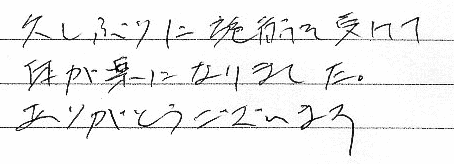 久しぶりに施術を受けて
体が楽になりました。
ありがとうございます